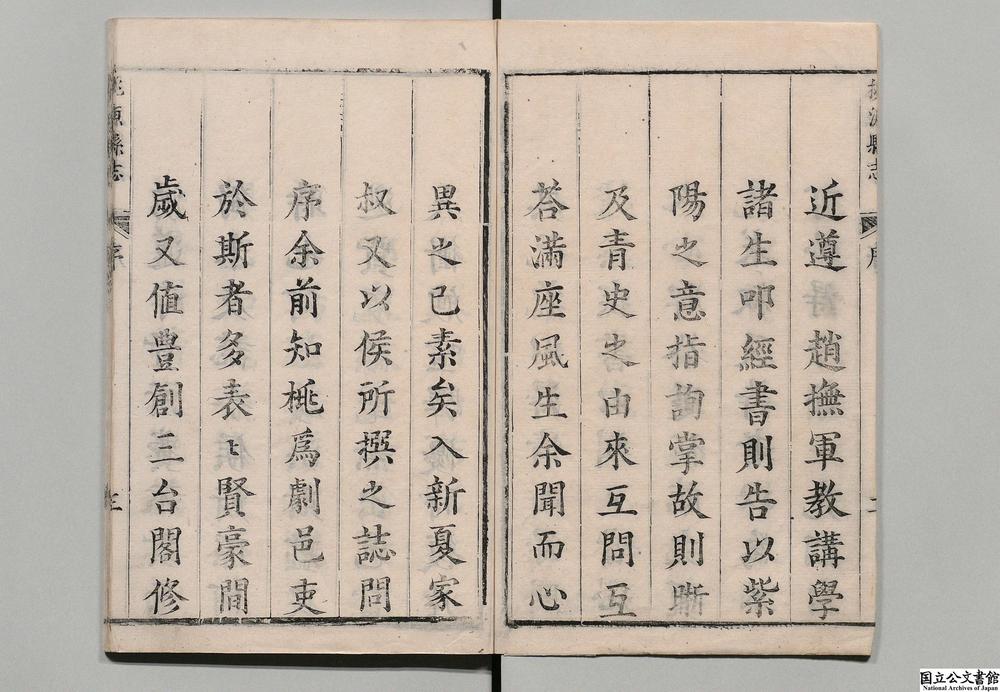 近遵趙撫軍教講學
諸生叩經書則告以紫
陽之意指詢掌故則晰
及青史之由來互問互
荅滿座風生余聞而心
異之已素矣入新夏家
叔又以侯所撰之誌問
序余前知桃爲劇邑吏
於斯者多表〻賢豪間
歲又值豊創三台閣修
桃源縣志
序
国立公文書館
National Archives of Japan